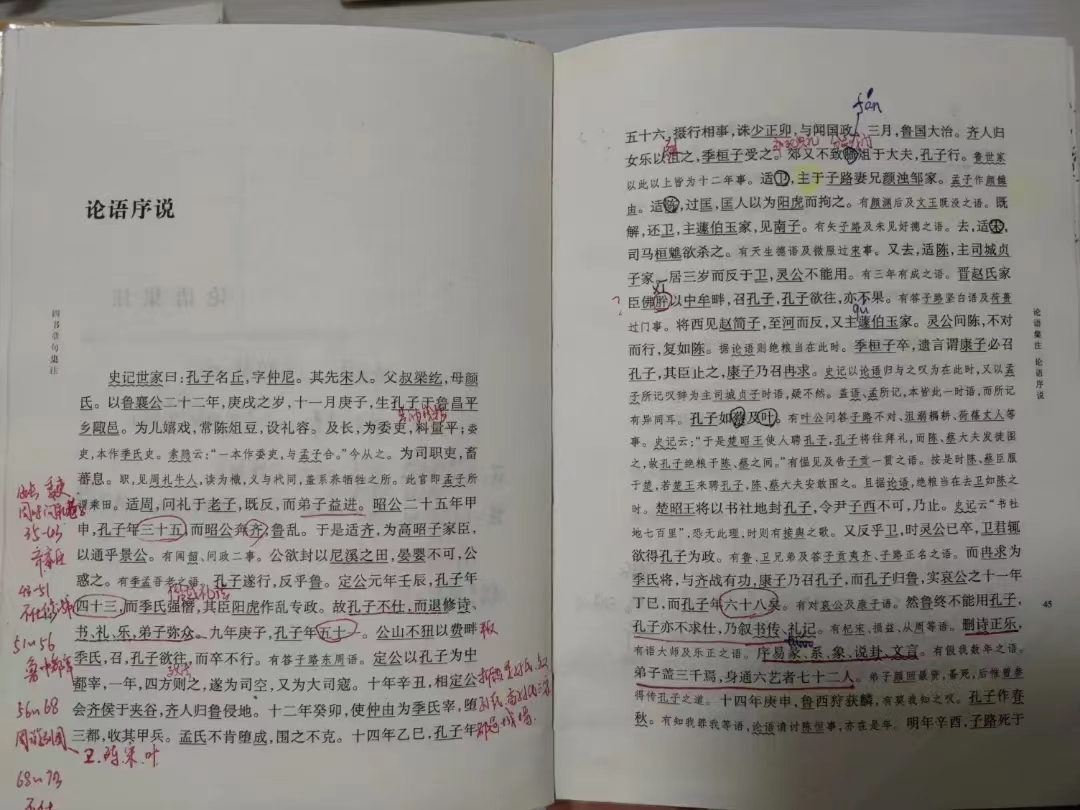 论语序说
四书章句集注
史记世家曰：孔子名丘，字仲尼。其先宋人。父叔梁纥，母颜
氏。以鲁襄公二十二年，庚戌之岁，十一月庚子，生孔子于鲁昌平
乡陬邑。为儿嬉戏，常陈俎豆，设礼容。及长，为委吏，料量平；委
吏，本作季氏史。索隐云：“一本作委吏，与孟子合。”今从之。为司职吏，畜
蕃息。职，见周礼牛人，读为樴，义与杙同，盖系养牺牲之所。此官即孟子所
谓乘田。适周，问礼于老子，既反，而弟子益进。昭公二十五年甲
申，孔子年三十五，而昭公奔齐，鲁乱。于是适齐，为高昭子家臣，
以通乎景公。有闻韶、问政二事。公欲封以尼溪之田，晏婴不可，公
惑之。有季孟吾老之语。孔子遂行，反乎鲁。定公元年壬辰，孔子年
四十三，而季氏强僭，其臣阳虎作乱专政。故孔子不仕，而退修诗、
书、礼、乐，弟子弥众。九年庚子，孔子年五十一。公山不狃以费畔
季氏，召，孔子欲往，而卒不行。有答子路东周语。定公以孔子为中
都宰，一年，四方则之，遂为司空，又为大司寇。十年辛丑，相定公
会齐侯于夹谷，齐人归鲁侵地。十二年癸卯，使仲由为季氏宰，堕
三都，收其甲兵。孟氏不肯堕成，围之不克。十四年乙巳，孔子年
35-43
43-51
51~56
56~68
68~73
叛
卫.陈.宋.叶
fǎn
五十六，摄行相事，诛少正卯，与闻国政。三月，鲁国大治。齐人归
女乐以沮之，季桓子受之。郊又不致膰俎于大夫，孔子行。鲁世家
以此以上皆为十二年事。适卫，主于子路妻兄颜浊邹家。孟子作颜雠
由。适陈，过匡，匡人以为阳虎而拘之。有颜渊后及文王既没之语。既
解，还卫，主蘧伯玉家，见南子。有矢子路及未见好德之语。去，适宋，
司马桓魋欲杀之。有天生德语及微服过宋事。又去，适陈，主司城贞
子家。居三岁而反于卫，灵公不能用。有三年有成之语。晋赵氏家
臣佛肸以中牟畔，召孔子，孔子欲往，亦不果。有答子路坚白语及荷蒉
过门事。将西见赵简子，至河而反，又主蘧伯玉家。灵公问陈，不对
而行，复如陈。据论语则绝粮当在此时。季桓子卒，遗言谓康子必召
孔子，其臣止之，康子乃召冉求。史记以论语归与之叹为在此时，又以孟
子所记叹辞为主司城贞子时语，疑不然。盖语、孟所记，本皆此一时语，而所记
有异同耳。孔子如蔡及叶。有叶公问答子路不对、沮溺耦耕、荷蓧丈人等
事。史记云：“于是楚昭王使人聘孔子，孔子将往拜礼，而陈、蔡大夫发徒围
之，故孔子绝粮于陈、蔡之间。”有愠见及告子贡一贯之语。按是时陈、蔡臣服
于楚，若楚王来聘孔子，陈、蔡大夫安敢围之。且据论语，绝粮当在去卫如陈之
时。楚昭王将以书社地封孔子，令尹子西不可，乃止。史记云“书社
地七百里”，恐无此理，时则有接舆之歌。又反乎卫，时灵公已卒，卫君辄
欲得孔子为政。有鲁、卫兄弟及答子贡夷齐、子路正名之语。而冉求为
季氏将，与齐战有功，康子乃召孔子，而孔子归鲁，实哀公之十一年
丁巳，而孔子年六十八矣。有对哀公及康子语。然鲁终不能用孔子，
孔子亦不求仕，乃叙书传、礼记。有杞宋、损益、从周等语。删诗正乐，
有语大师及乐正之语。序易彖、系、象、说卦、文言。有假我数年之语。
弟子盖三千焉，身通六艺者七十二人。弟子颜回最贤，蚤死，后惟曾参
得传孔子之道。十四年庚申，鲁西狩获麟，有莫我知之叹。孔子作春
秋。有知我罪我等语，论语请讨陈恒事，亦在是年。明年辛酉，子路死于
xī
qú
论语集注 论语序说
45